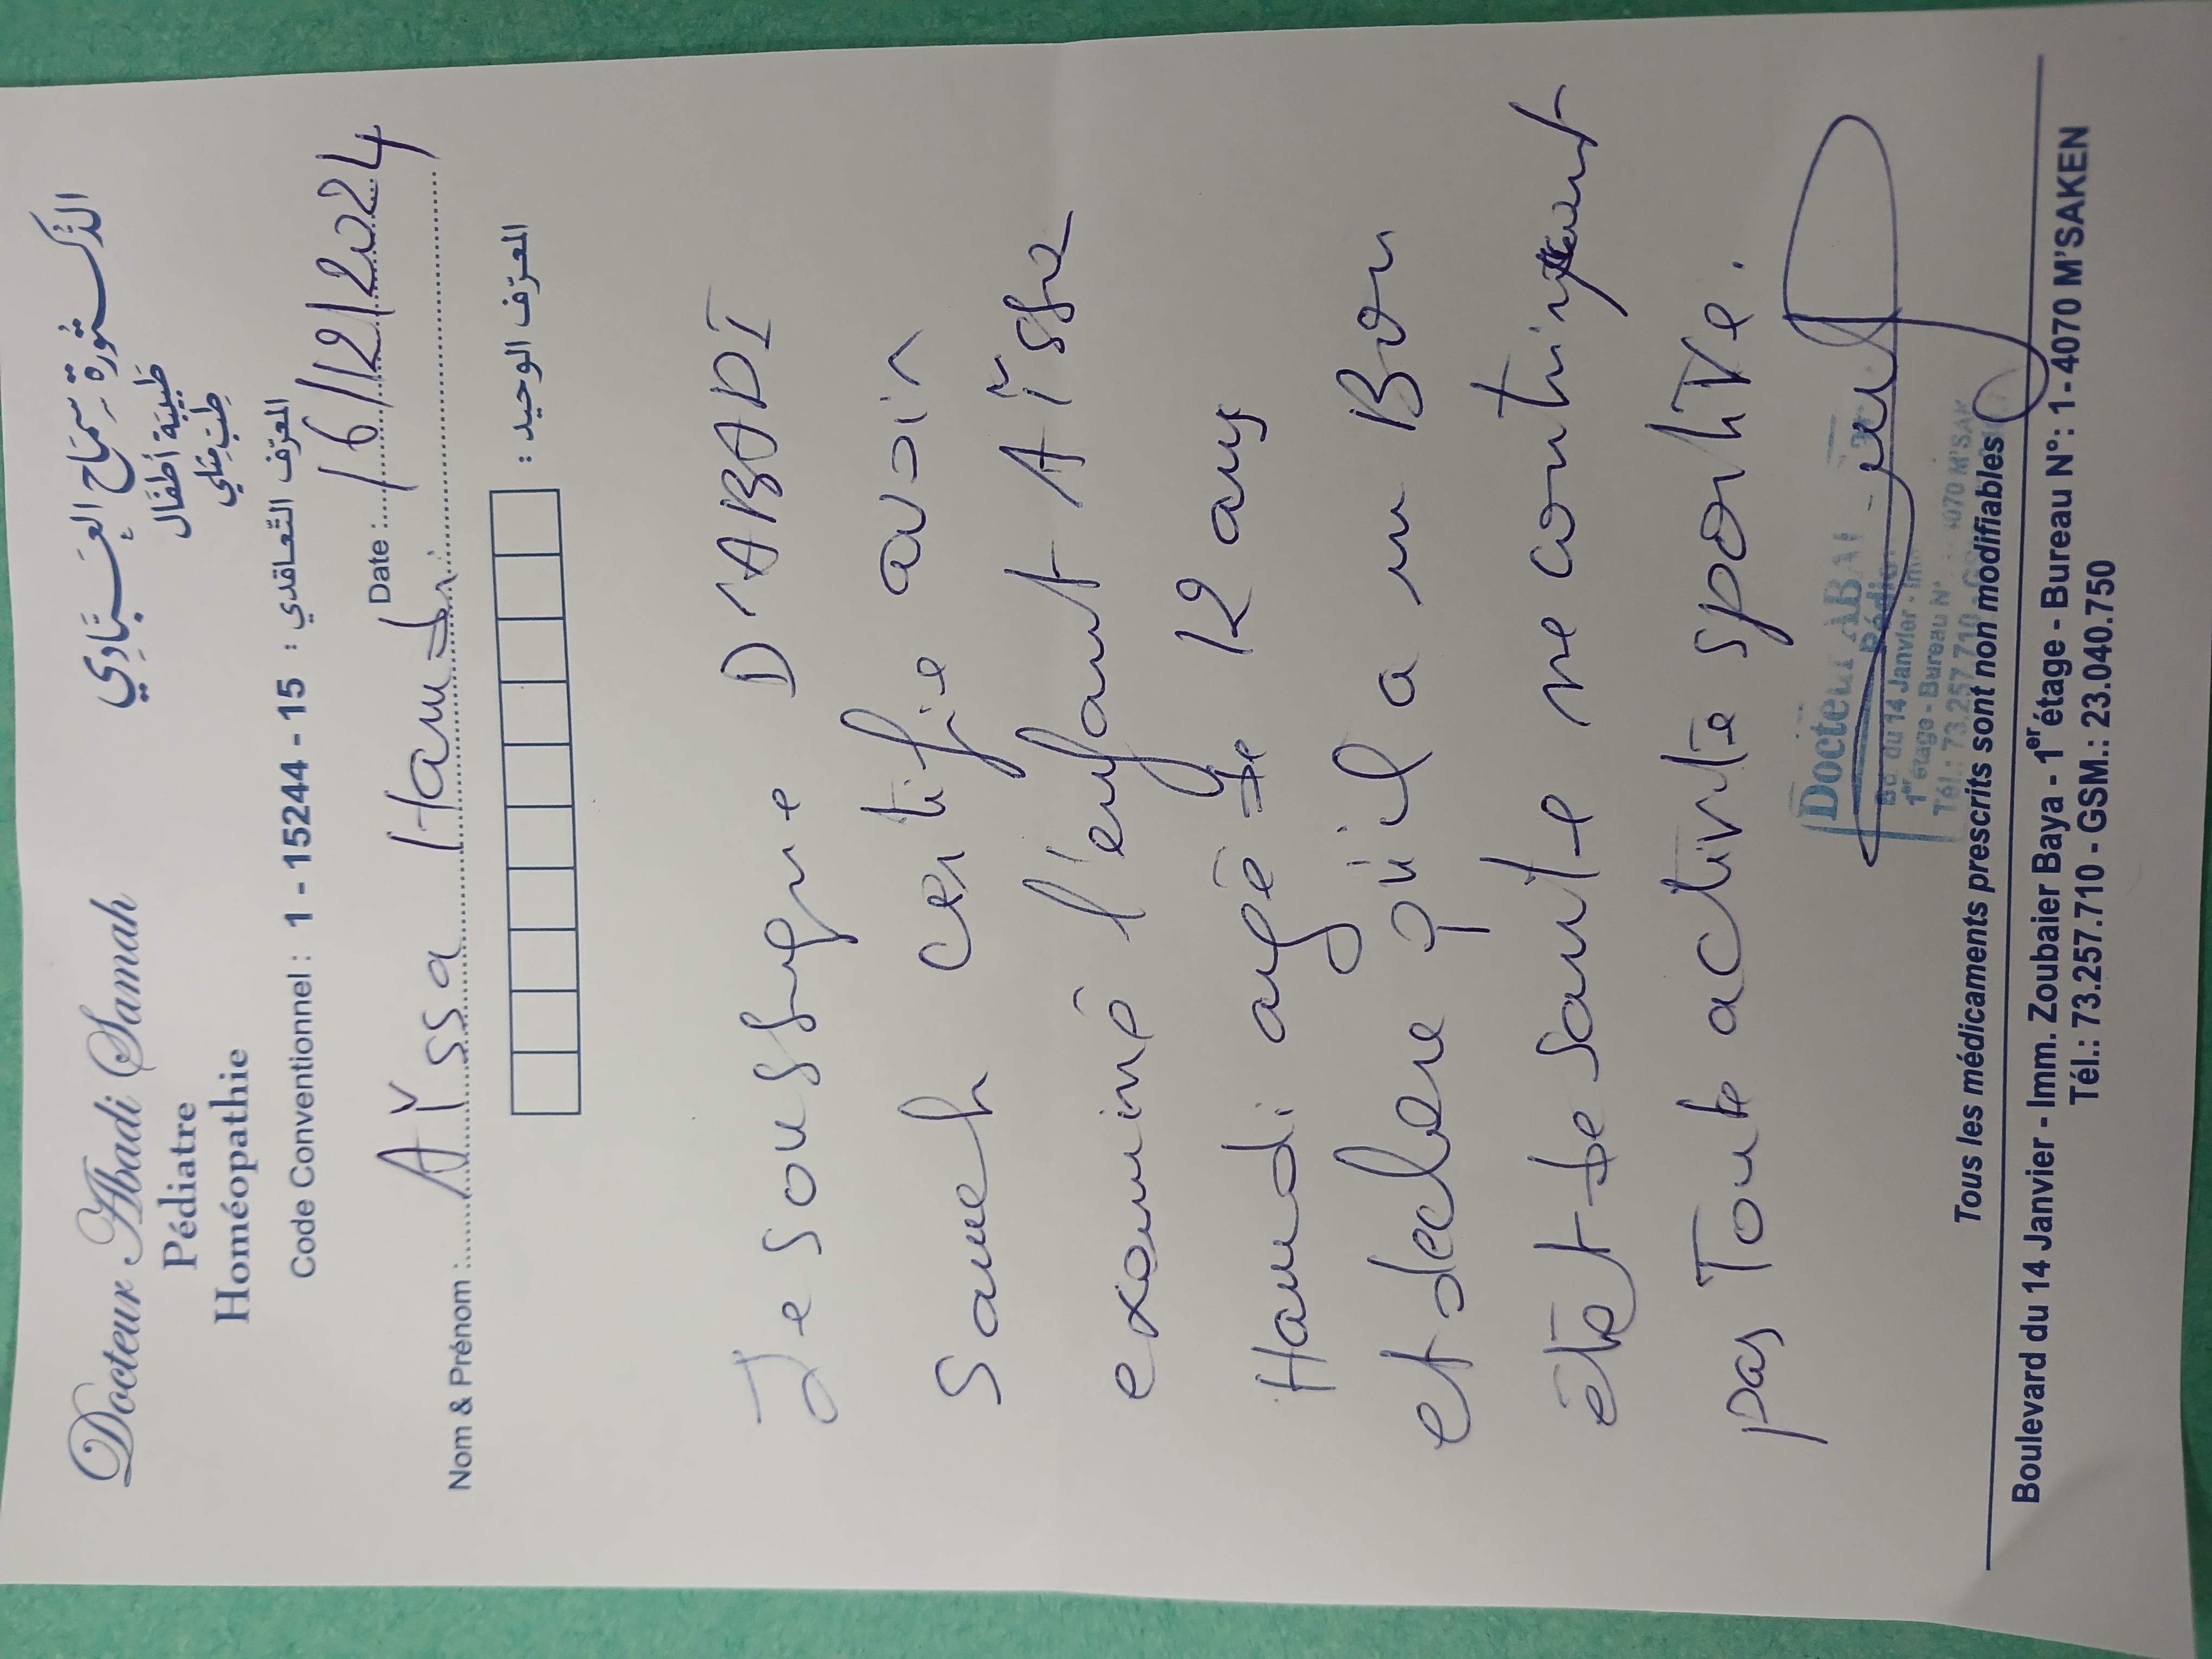 Docteur Abadi Samah
الدكتورة سماح العبادي
Pédiatre
طبيبة أطفال
Homéopathie
طب مثلي
Code Conventionnel : 1 - 15244 - 15 : المعرف التعاقدي
Date : 16/12/2024
Nom & Prénom : Aïssa Hamdi
المعرف الوحيد :
Je soussigne Dr ABADI
Sameh certifie avoir
examiné l'enfant Aïssa
Hamdi agé de 12 ans
et declare qu'il a un Bon
état de sante ne contre
pas Toute activité sportive.
Docteur ABA
Bd du 14 Janvier - Imm
1er étage - Bureau N° 4070 M'SAK
Tél.: 73.257.710
Tous les médicaments prescrits sont non modifiables
Boulevard du 14 Janvier - Imm. Zoubaier Baya - 1er étage - Bureau N°: 1 - 4070 M'SAKEN
Tél.: 73.257.710 - GSM.: 23.040.750